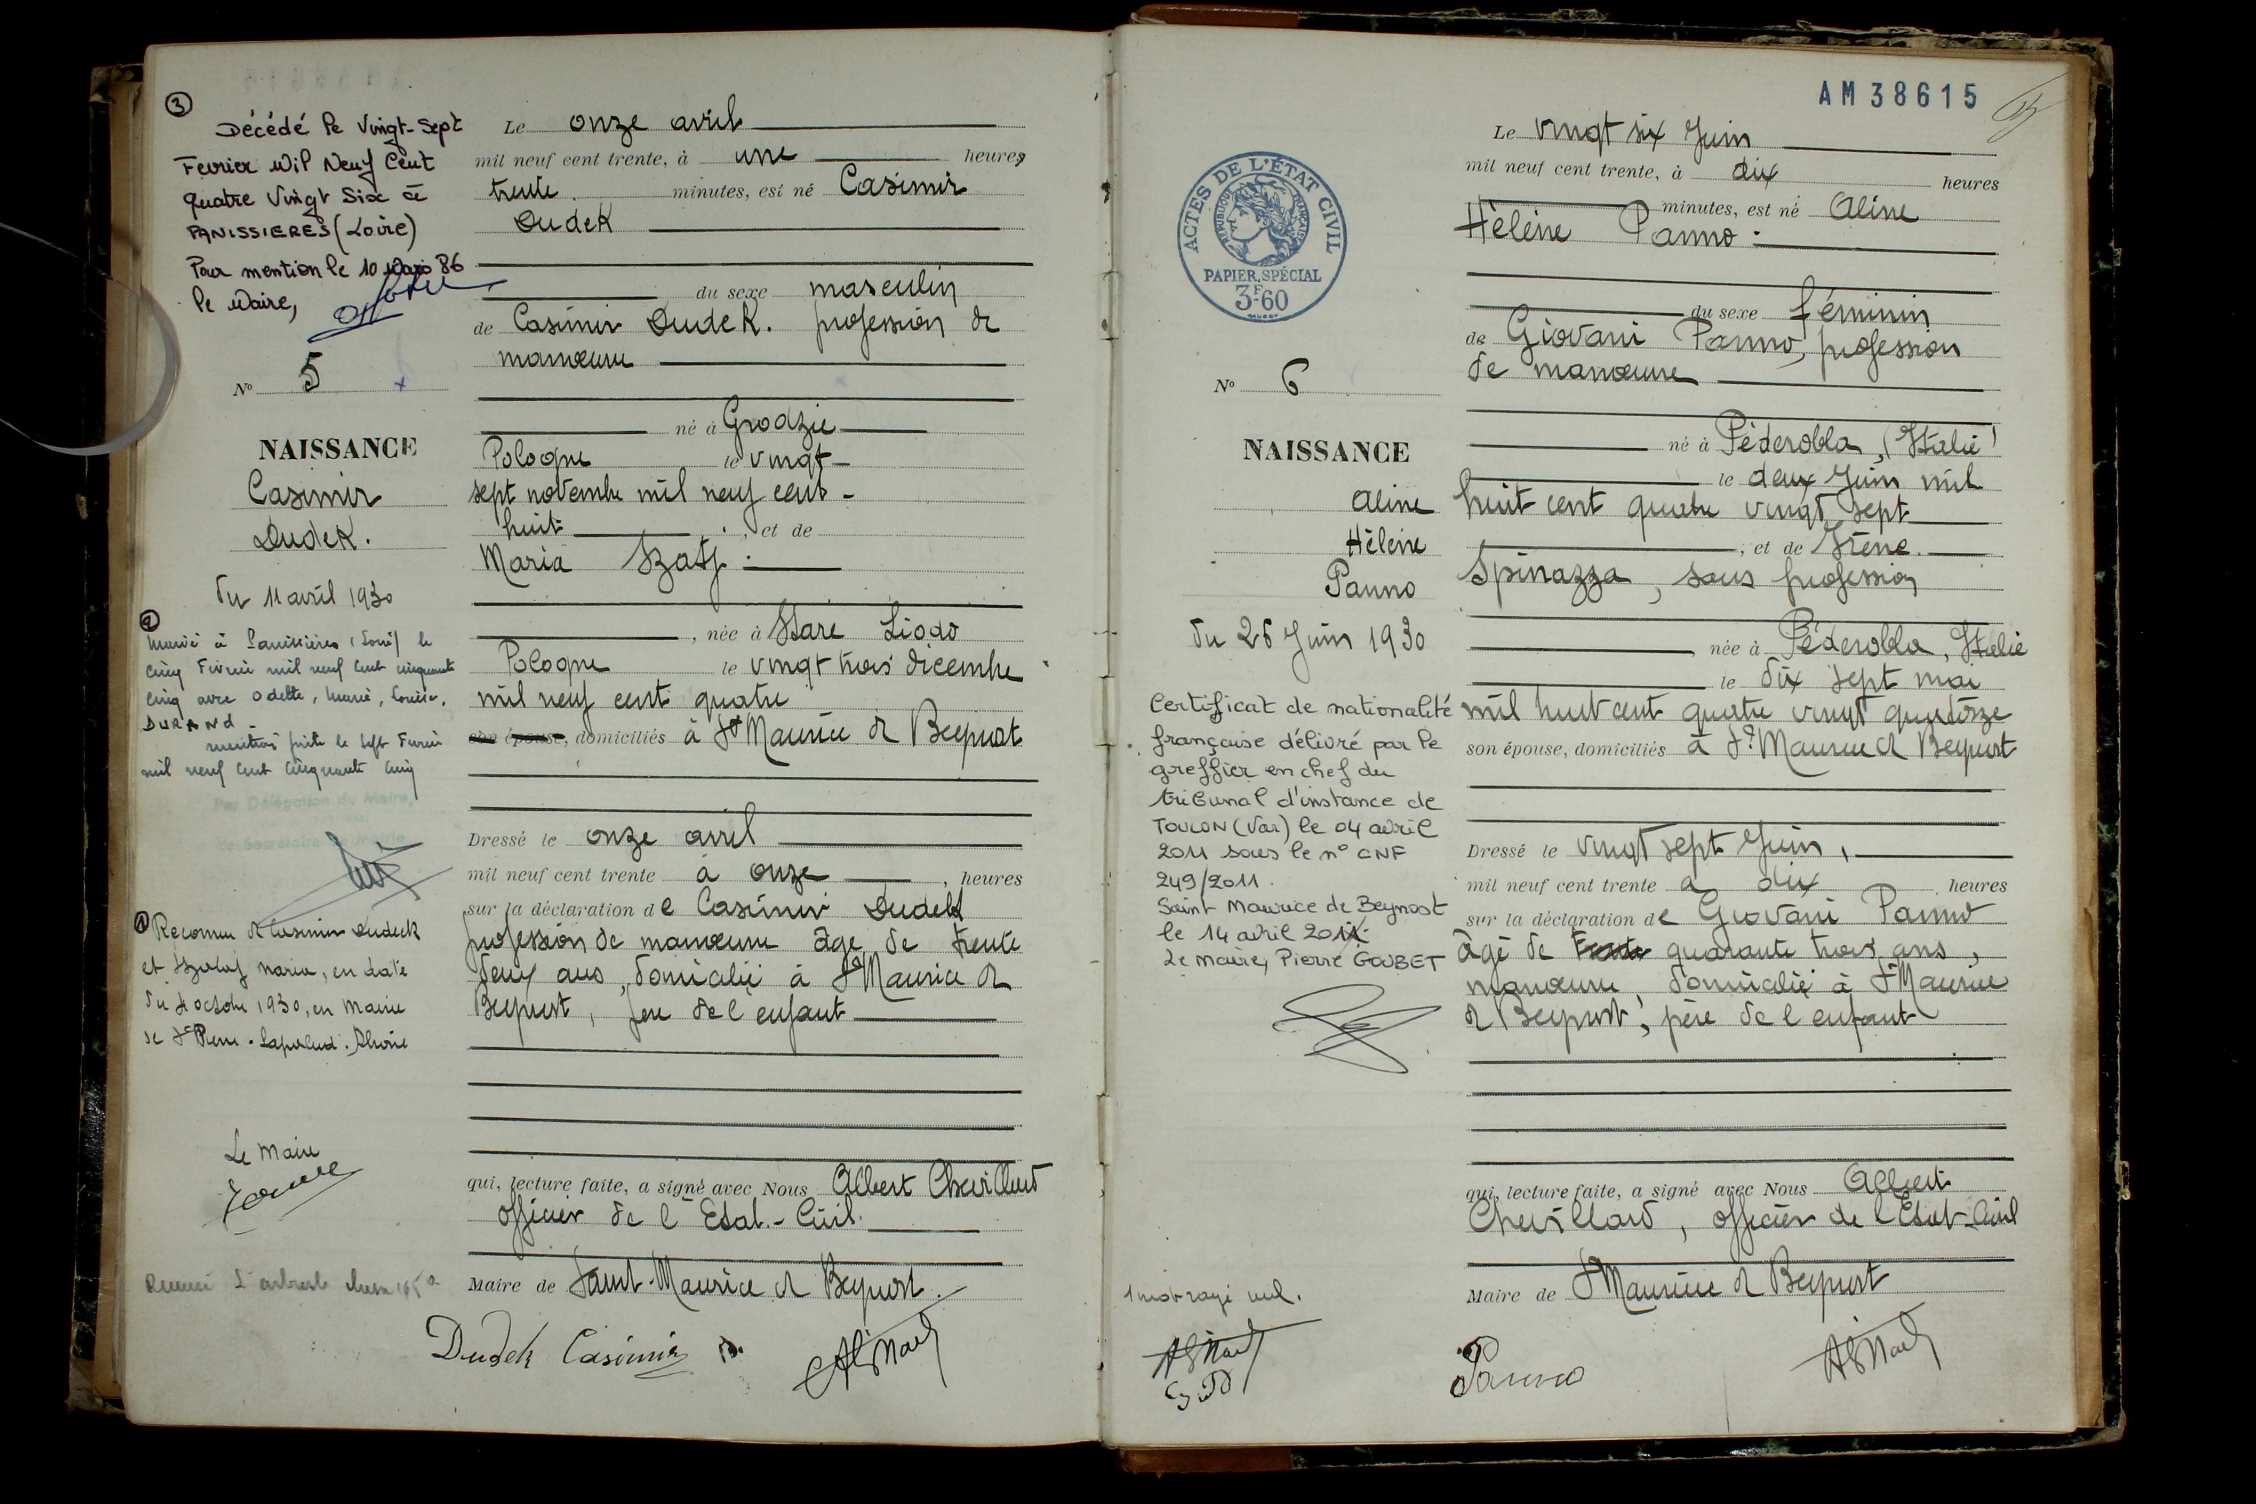 ③
Décédé le Vingt-Sept
Fevrier Mil Neuf Cent
quatre Vingt Six à
PANISSIERES (Loire)
Pour mention le 10 Mars 86
le Maire,
N° 5
NAISSANCE
Casimir
Dudek.
du 11 avril 1930
②
Marié à Panissières (Loire) le
cinq Février mil neuf cent cinquante
cinq avec Odette, Marie, Louise,
DURANd
mention faite le sept Février
mil neuf cent cinquante cinq
Par Délégation du Maire,
Le Secrétaire de Mairie
① Reconnu de Casimir Dudeck
et Maria, en date
du 4 octobre 1930, en Mairie
de St Pierre.
Le Maire
Le onze avril
mil neuf cent trente, à une heures
trente minutes, est né Casimir
Dudek
du sexe masculin
de Casimir Dudek. profession de
manœuvre
né à Grodzie
Pologne le vingt
sept novembre mil neuf cent
huit, et de
Maria Szatj.
, née à Stare Liodo
Pologne le vingt trois décembre
mil neuf cent quatre
son épouse, domiciliés à St Maurice de Beynost
Dressé le onze avril
mil neuf cent trente à onze, heures
sur la déclaration de Casimir Dudek
profession de manœuvre âgé de trente
deux ans, domicilié à St Maurice de
Beynost, père de l'enfant
qui, lecture faite, a signé avec Nous Albert Chevillard
officier de l'Etat-Civil.
Maire de Saint-Maurice de Beynost.
Dudek Casimir
AM38615
ACTES DE L'ÉTAT CIVIL
RÉPUBLIQUE FRANÇAISE
PAPIER SPÉCIAL
3F60
N° 6
NAISSANCE
Aline
Hélène
Panno
du 26 Juin 1930
Certificat de nationalité
française délivré par le
greffier en chef du
tribunal d'instance de
TOULON (Var) le 04 avril
2011 sous le n° CNF
249/2011.
Saint Maurice de Beynost
le 14 avril 2011
Le maire, Pierre GOUBET
1 mot rayé nul.
Le vingt six Juin
mil neuf cent trente, à dix heures
minutes, est né Aline
Hélène Panno.
du sexe féminin
de Giovani Panno, profession
de manœuvre
né à Péderobba, (Italie)
le deux Juin mil
huit cent quatre vingt sept
, et de Irène
Spinazza, sans profession
née à Péderobba, Italie
le dix sept mai
mil huit cent quatre vingt quatorze
son épouse, domiciliés à St Maurice de Beynost
Dressé le vingt sept Juin,
mil neuf cent trente à dix, heures
sur la déclaration de Giovani Panno
âgé de trente quarante trois ans,
manœuvre, domicilié à St Maurice
de Beynost, père de l'enfant
qui, lecture faite, a signé avec Nous Albert
Chevillard, officier de l'Etat-Civil
Maire de St Maurice de Beynost
Panno